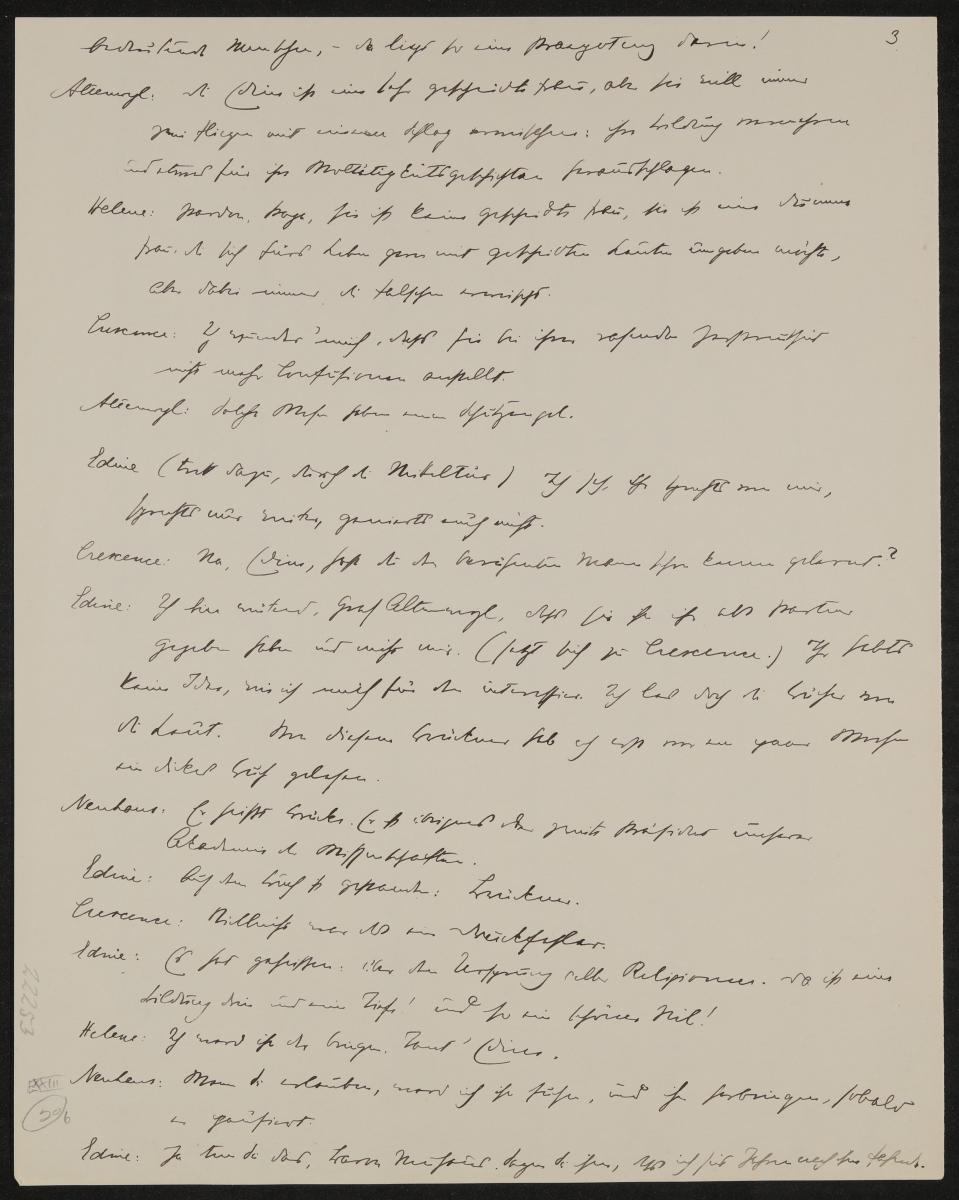 3
bedeutende Menschen, – da liegt so eine Prangotung darin!
Altenwyl: die Edine ist eine sehr gescheidte Frau, aber sie will immer
zwei Fliegen mit einem Schlag erwischen: ihre Bildung vermehren
und etwas für ihre Wohltätigkeitsgeschichten herausschlagen.
Helene: pardon, Papa, sie ist keine gescheidte Frau, sie ist eine dumme
Frau, die sich fürs Leben gern mit gescheidten Leuten umgeben möchte,
aber dabei immer die falschen erwischt.
Crescence: Ich wunder' mich, dass sie bei ihrer rasenden Zerstreutheit
nicht mehr Confusionen anstellt.
Altenwyl: Solche Wesen haben einen Schutzengel.
Edine (tritt dazu, durch die Mitteltür) Ich seh, Ihr sprechts von mir,
sprechts nur weiter, genierts euch nicht.
Crescence: Na, Edine, hast du den berühmten Mann schon kennen gelernt?
Edine: Ich bin wütend, Graf Altenwyl, dass Sie ihn ihr als Partner
gegeben haben und nicht mir. (setzt sich zu Crescence.) Ihr habts
keine Idee, wie ich mich für den interessier. Ich les doch die Bücher von
die Leut. Von diesem Brückner hab ich erst vor ein paar Wochen
ein dickes Buch gelesen.
Neuhaus: Er heißt Brücke. Er ist übrigens der zweite Präsident unserer
Akademie der Wissenschaften.
Edine: Auf dem Buch ist gestanden: Brückner.
Crescence: Vielleicht war das ein Druckfehler.
Edine: Es hat geheißen: über den Ursprung aller Religionen. Da ist eine
Bildung drin und eine Tiefe! Und so ein schöner Stil!
Helene: Ich werd ihn dir bringen, Tant' Edine.
Neuhaus: Wenn Sie erlauben, werd ich ihn suchen, und ihn herbringen, sobald
er pausiert.
Edine: Ja tun Sie das, Baron Neuhaus. Sagen Sie ihm, dass ich seit Jahren nach ihm
22253
XXIII